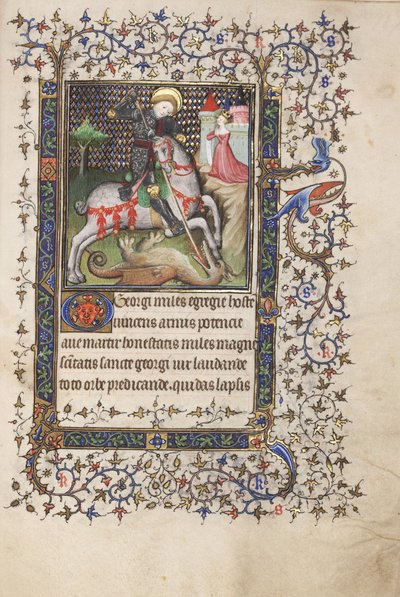 O Georgi miles egregie hostē
uincens armis potencie
aue martir honestatis miles magne
sc̄titatis sancte georgi uir laudande
toto orbe predicande. qui das lapsis